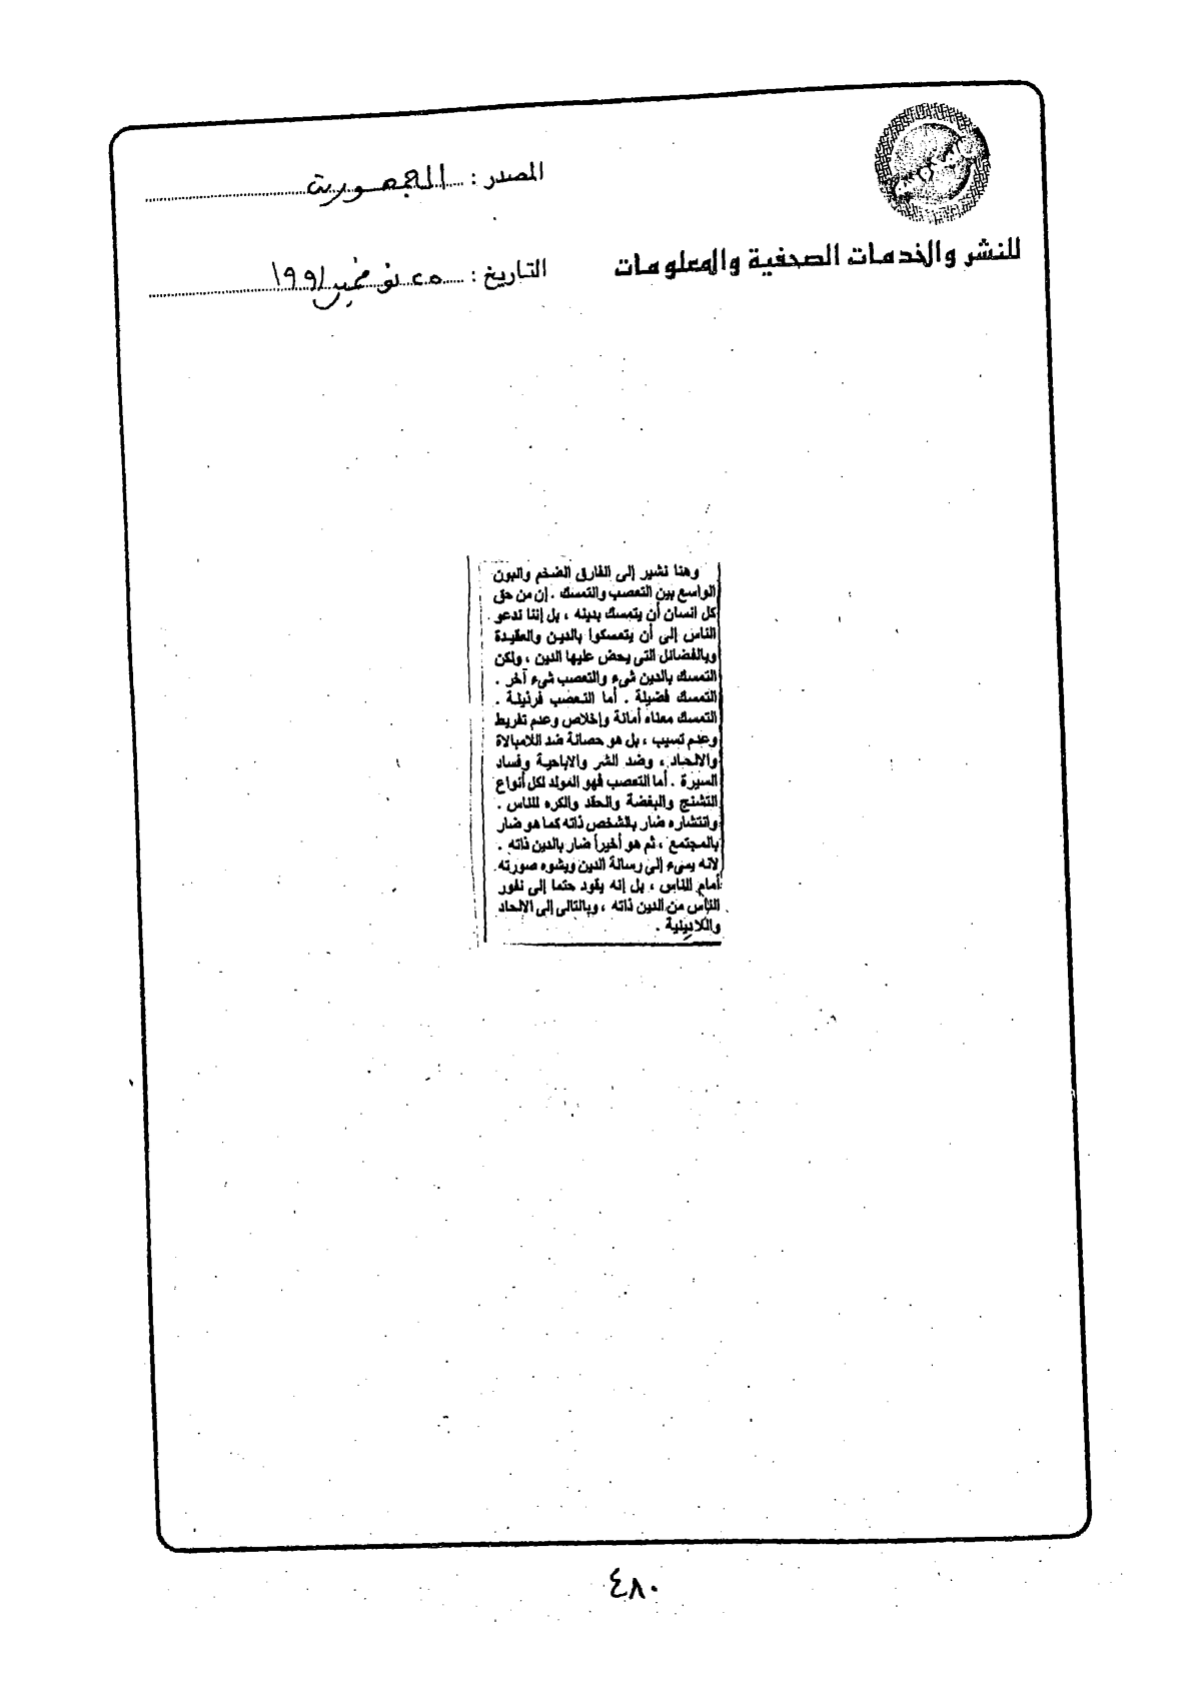 المصدر : الجمهورية
للنشر والخدمات الصحفية والمعلومات
التاريخ : ٢٥ نوفمبر ١٩٩١
وهنا نشير إلى الفارق الضخم والبون
الواسع بين التعصب والتمسك . إن من حق
كل انسان أن يتمسك بدينه ، بل إننا ندعو
الناس إلى أن يتمسكوا بالدين والعقيدة
وبالفضائل التى يحض عليها الدين ، ولكن
التمسك بالدين شىء والتعصب شىء آخر .
التمسك فضيلة . أما التعصب فرذيلة .
التمسك معناه أمانة وإخلاص وعدم تفريط
وعدم تسيب ، بل هو حصانة ضد اللامبالاة
والالحاد ، وضد الشر والاباحية وفساد
السيرة . أما التعصب فهو المولد لكل أنواع
التشنج والبغضة والحقد والكره للناس .
وانتشاره ضار بالشخص ذاته كما هو ضار
بالمجتمع ، ثم هو أخيراً ضار بالدين ذاته .
لانه يسىء إلى رسالة الدين ويشوه صورته
أمام الناس ، بل إنه يقود حتما إلى نفور
الناس من الدين ذاته ، وبالتالى إلى الالحاد
واللادينية .
٤٨٠